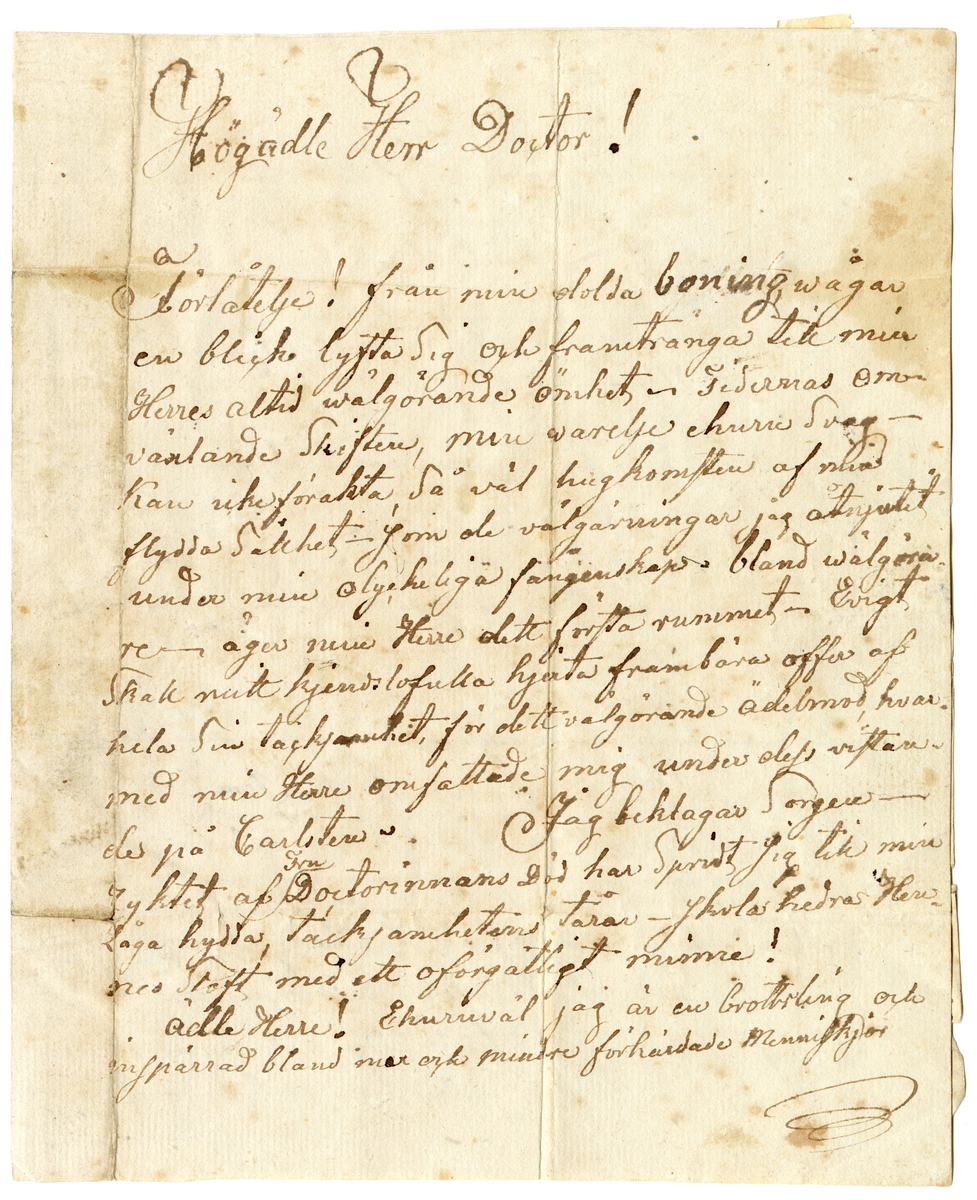 Högädle Herr Doctor!
Förlåtelse! från min dolda boning, wågar
en blick lyfta Sig och framtränga till min
Herres altid wälgörande ömhet – Tidernas om-
växlande Skiften, min warelse ehuru Svag –
Kan icke förakta, Så väl hugkomsten af min
flydda Sällhet – Som de välgärningar jag åtnjutit
under min olyckeliga fångenskap. bland wälgöra-
re – äger min Herre dett första rummet – Evigt
Skall mitt hjerta frambära offer af
hela Sin tacksamhet, för dett välgörande ädelmod, hvar-
med min Herre omfattade mig under dess vistan-
de på Carlsten. Jag beklagar Sorgen –
Ryktet af Fru Doctorinnans Död har Spridt Sig till min
Låga hydda, tacksamhetens tårar – Skola hedra Hen-
nes Stoft med ett oförgätligt minne!
Ädle Herre! Ehuruväl jag är en brottsling och
inspärrad bland mer och mindre förhärdade Menniskjor